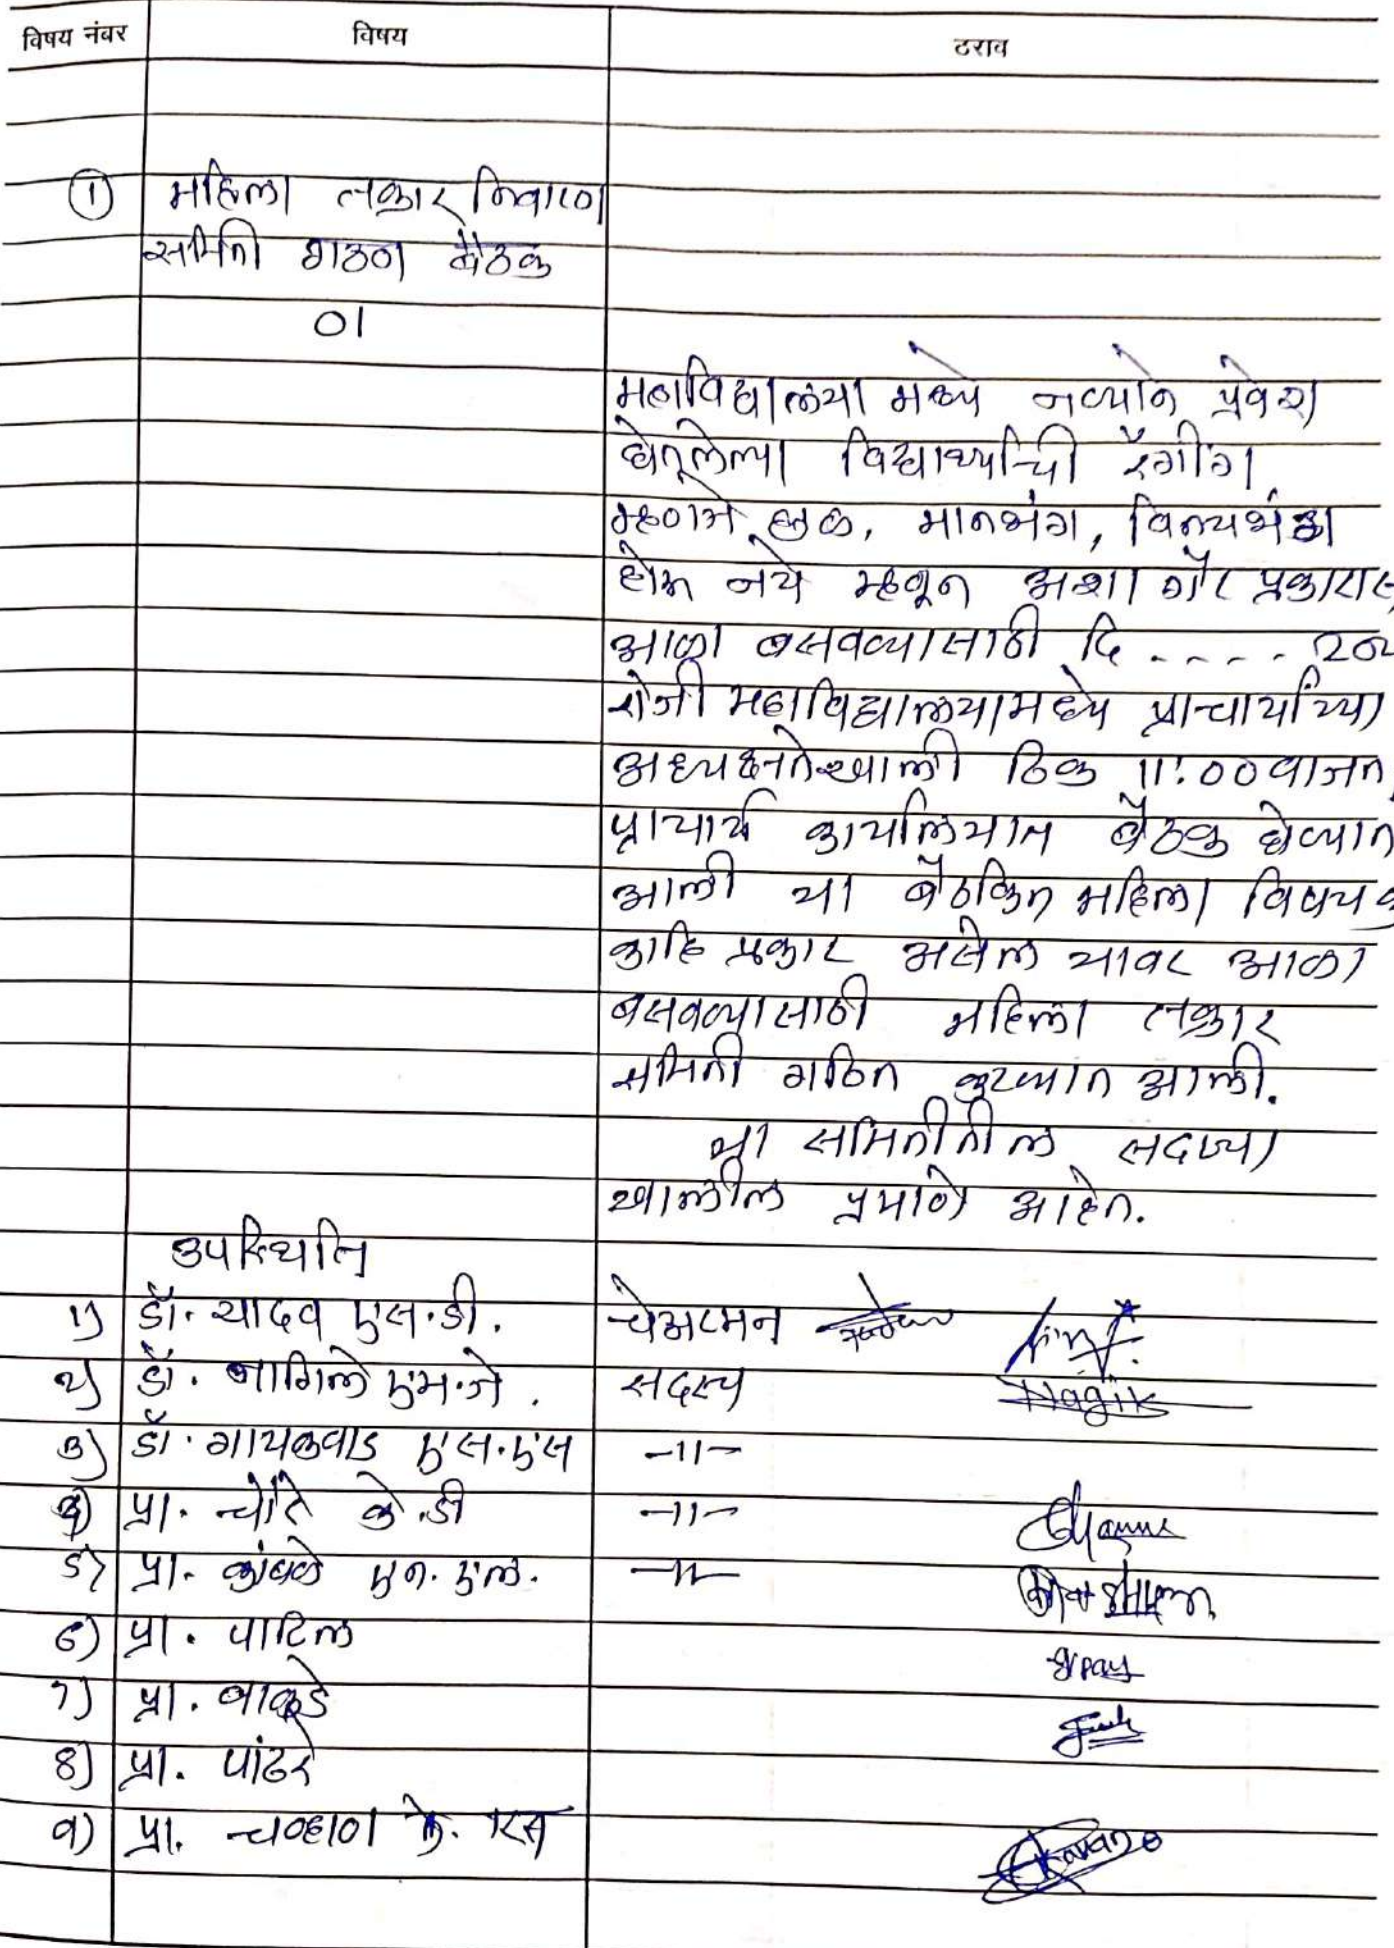 विषय नंबर विषय ठराव
① महिला तक्रार निवारण
समिती गठण बैठक
01
महाविद्यालया मध्ये नव्याने प्रवेश
घेतलेल्या विद्यार्थ्यांची रॅगींग
म्हणजे छळ, मानभंग, विनयभंग
होऊ नये म्हणून अशा गैर प्रकारास
आळा बसवण्यासाठी दि ..... 202
रोजी महाविद्यालयामध्ये प्राचार्यांच्या
अध्यक्षतेखाली ठिक 11:00 वाजता
प्राचार्य कार्यालयात बैठक घेण्यात
आली या बैठकित महिला विषयक
काहि प्रकार असेल यावर आळा
बसवण्यासाठी महिला तक्रार
समिती गठित करण्यात आली.
या समितीतील सदस्या
खालील प्रमाणे आहेत.
उपस्थिति
1) डॉ. यादव एस.डी. चेअरमन
2) डॉ. नागिले एम.जे. सदस्य Nagik
3) डॉ. गायकवाड एस.एस -11-
4) प्रा. चौरे के.डी -11-
5) प्रा. कांबळे एन.एल. -11-
6) प्रा. पाटिल
7) प्रा. बाकडे
8) प्रा. पांढरे
9) प्रा. चव्हाण के. एस